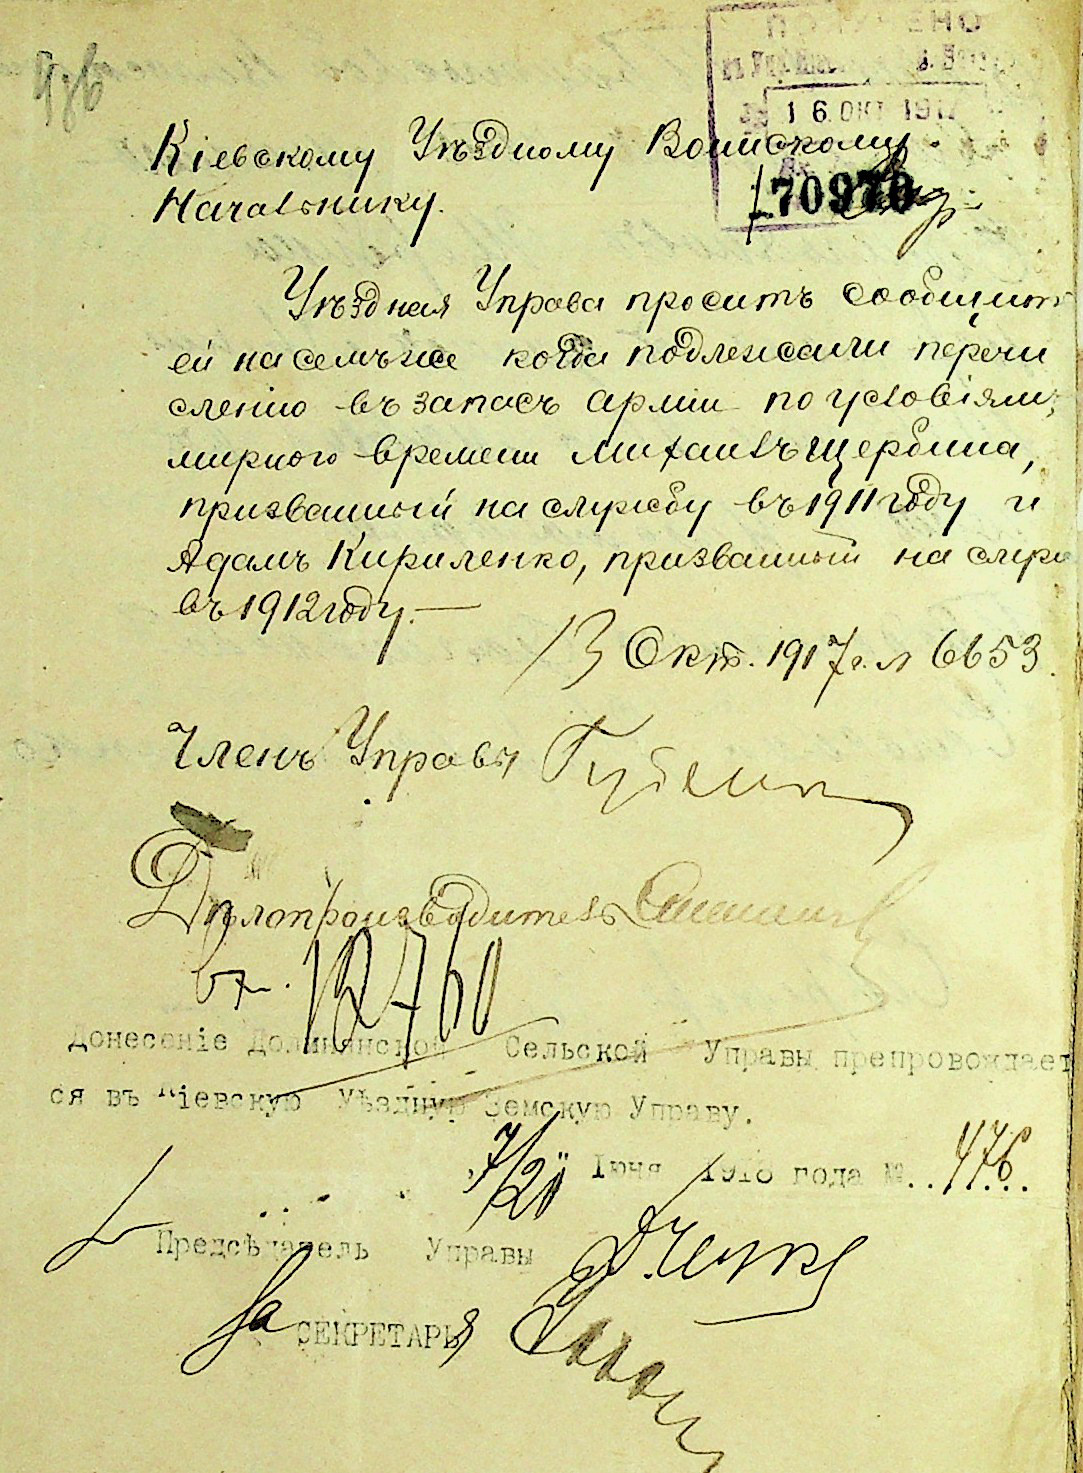 ПОЛУЧЕНО
16 ОКТ 1917
70970
Кіевскому Уѣздному Воинскому
Начальнику.
Уѣздная Управа проситъ сообщить
ей на семъ же когда подлежали перечи
сленію въ запасъ арміи по условіямъ
мирного времени Михаилъ Щербина,
призванный на службу въ 1911 году и
Адамъ Кириленко, призванный на служ
въ 1912 году.—
13 Окт. 1917 г. № 6653.
Членъ Управы
Дѣлопроизводитель
вх. 12760
Донесеніе Долинянской Сельской Управы препровождает
ся въ Кіевскую Уѣздную Земскую Управу.
"7/20" Іюня 1918 года №..476..
Предсѣдатель Управы
За СЕКРЕТАРЯ